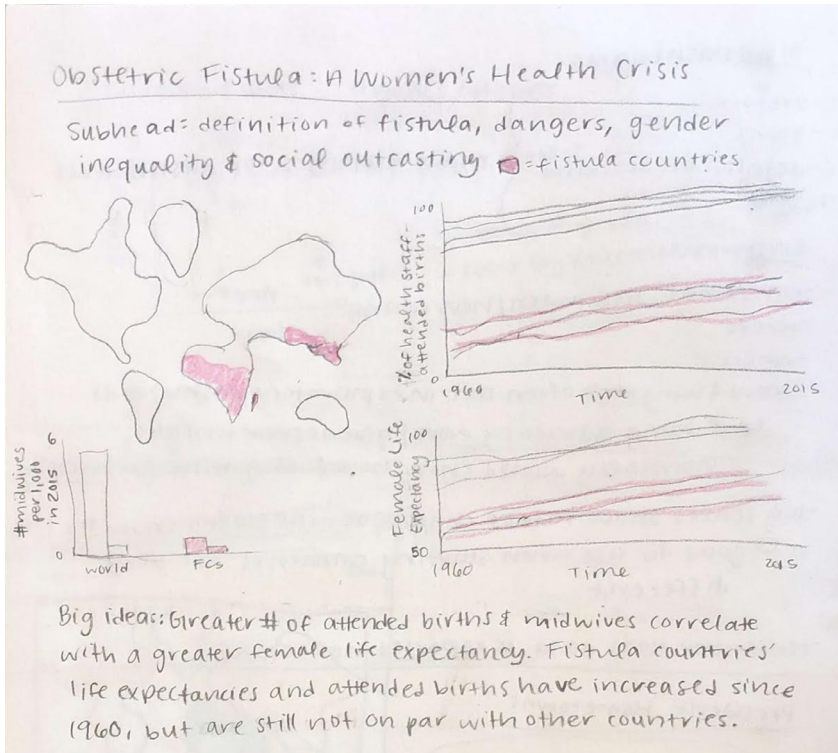 Obstetric Fistula: A Women's Health Crisis
Subhead = definition of fistula, dangers, gender
inequality & social outcasting = fistula countries
100
% of health staff-
attended births
0
1960
Time
2015
6
#midwives
per 1,000
in 2015
0
World
FCs
100
Female Life
Expectancy
50
1960
Time
2015
Big ideas: Greater # of attended births & midwives correlate
with a greater female life expectancy. Fistula countries'
life expectancies and attended births have increased since
1960, but are still not on par with other countries.